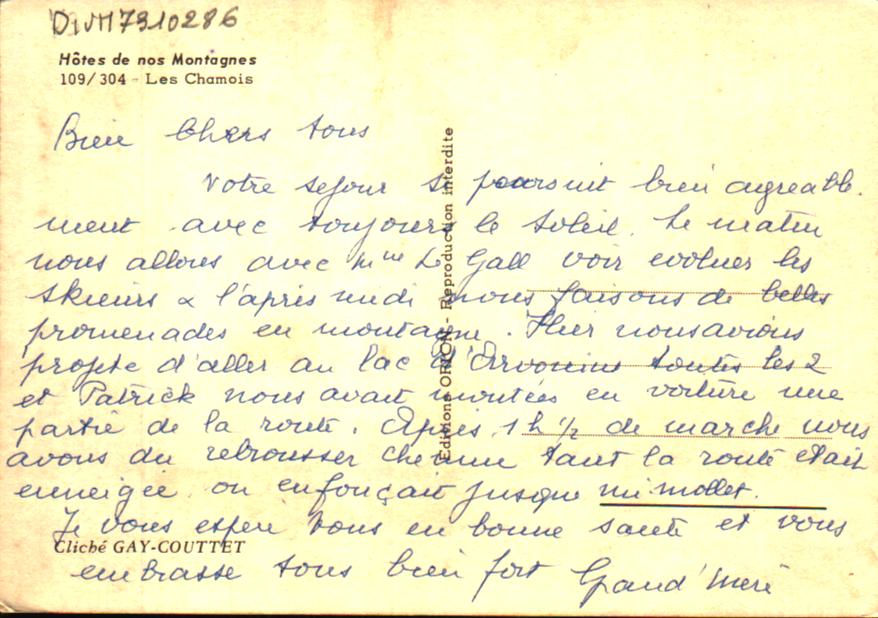 DIVM7310286
Hôtes de nos Montagnes
109/304 - Les Chamois
Bien Chers tous
Votre sejour se poursuit bien agreable.
ment avec toujours le soleil. Le matin
nous allons avec Mme Le Gall voir evoluer les
skieurs & l'après midi nous faisons de belles
promenades en montagne. Hier nous avions
projete d'aller au lac d'Arvouin toutes les 2
et Patrick nous avait montées en voiture une
partie de la route. Après 1h 1/2 de marche nous
avons du rebrousser chemin tant la route etait
enneigée on enfonçait jusque mi mollet.
Je vous espere tous en bonne sante et vous
embrasse tous bien fort Grand'mere
Cliché GAY-COUTTET
Editions ORION - Reproduction interdite